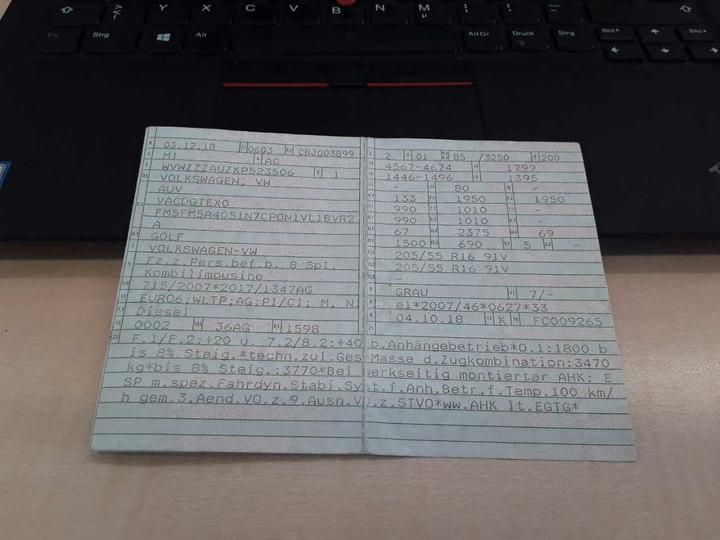 Strg
Alt
C
V
B
N
M
µ
Alt Gr
Druck
Strg
Bild
Bild
03.12.18 0603 CBJ003899
M1 AC
WVWZZZAUZKP523506 1
VOLKSWAGEN, VW
AUV
VACDGTEX0
FM5FM5A4051N7CPON1VL1BVR2
A
GOLF
VOLKSWAGEN-VW
Fz.z.Pers.bef.b. 8 Spl.
Kombilimousine
715/2007*2017/1347AG
EURO6;WLTP;AG;PI/CI; M, N
Diesel
0002 36AG 1598
2 01 85 /3250 200
4567-4674 1799
1446-1496 1395
- 80 -
133 1950 1950
990 1010 -
990 1010 -
67 2375 69
1500 690 5 -
205/55 R16 91V
205/55 R16 91V
-
GRAU 7/-
e1*2007/46*0627*33
04.10.18 K FC009265
F.1/F.2:+20 u. 7.2/8.2:+40 b.Anhängebetrieb*O.1:1800 b
is 8% Steig.*techn.zul.Ges Masse d.Zugkombination:3470
kg*bis 8% Steig.:3770*Bei werkseitig montierter AHK: E
SP m.spez.Fahrdyn.Stabi.Syst.f.Anh.Betr.f.Temp.100 km/
h gem.3.Aend.VO.z.9.Ausn.VO.z.STVO*ww.AHK lt.EGTG*